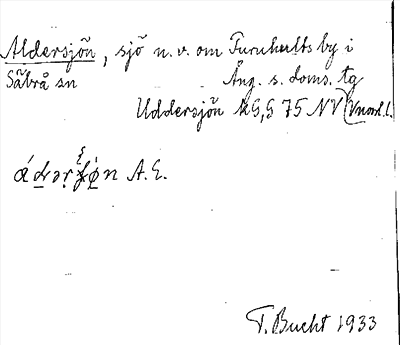 Aldersjön, sjö n.v. om Furuhults by i
Säbrå sn Ång. s. doms. tg
Uddersjön kG, G 75 NV (Vnord. l.
A.E.
T. Bucht 1933